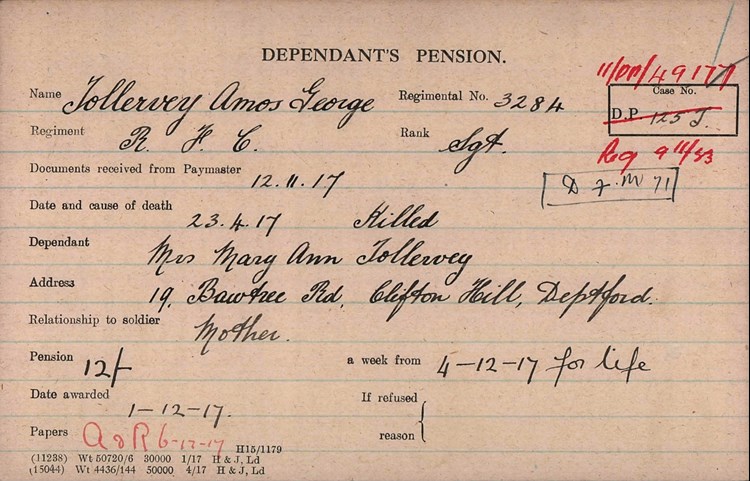 DEPENDANT'S PENSION.
11/DP/49177
Name Tollervey Amos George Regimental No. 3284
Case No.
D.P. 125 J.
Regiment R. F. C. Rank Sgt.
Reg 9 11/33
Documents received from Paymaster 12.11.17
D F. M 71
Date and cause of death 23.4.17 Killed
Dependant Mrs Mary Ann Tollervey
Address 19, Bawtree Rd, Clifton Hill, Deptford.
Relationship to soldier Mother.
Pension 12/- a week from 4-12-17 for life
Date awarded 1-12-17. If refused
reason
Papers A & R 6-12-17
H15/1179
(11238) Wt 50720/6 30000 1/17 H & J, Ld
(15044) Wt 4436/144 50000 4/17 H & J, Ld